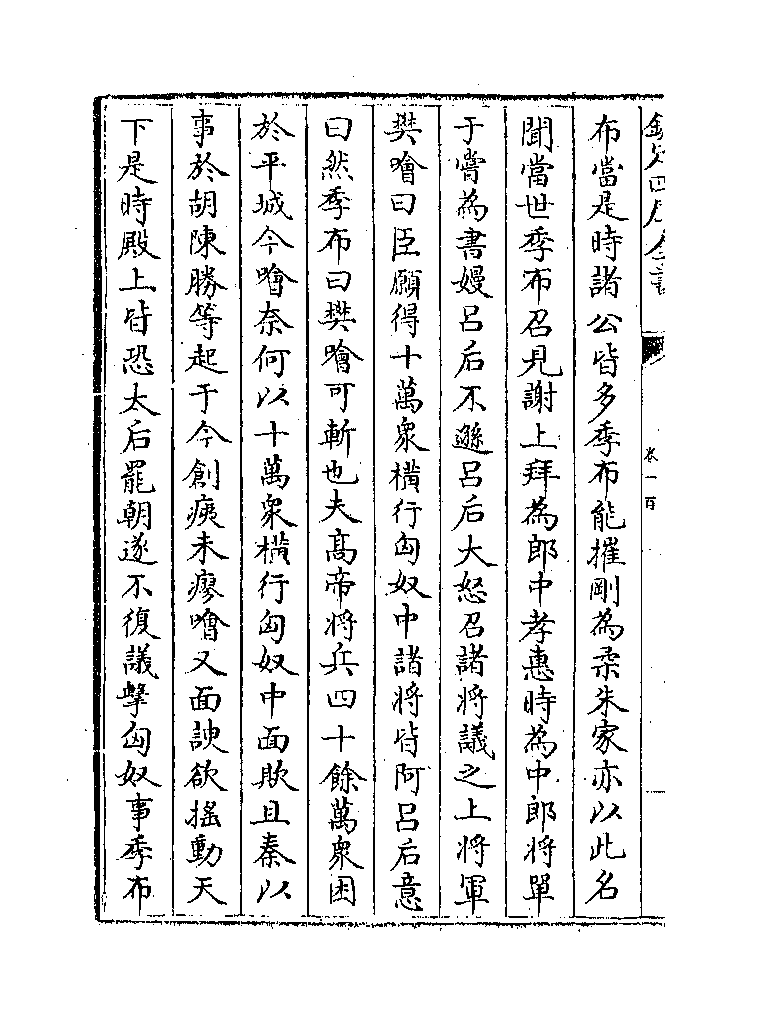 欽定四庫全書
卷一百
布當是時諸公皆多季布能摧剛為柔朱家亦以此名
聞當世季布召見謝上拜為郎中孝惠時為中郎將單
于嘗為書嫚呂后不遜呂后大怒召諸將議之上將軍
樊噲曰臣願得十萬衆橫行匈奴中諸將皆阿呂后意
曰然季布曰樊噲可斬也夫髙帝將兵四十餘萬衆困
於平城今噲奈何以十萬衆橫行匈奴中面欺且秦以
事於胡陳勝等起于今創痍未瘳噲又面諛欲搖動天
下是時殿上皆恐太后罷朝遂不復議擊匈奴事季布